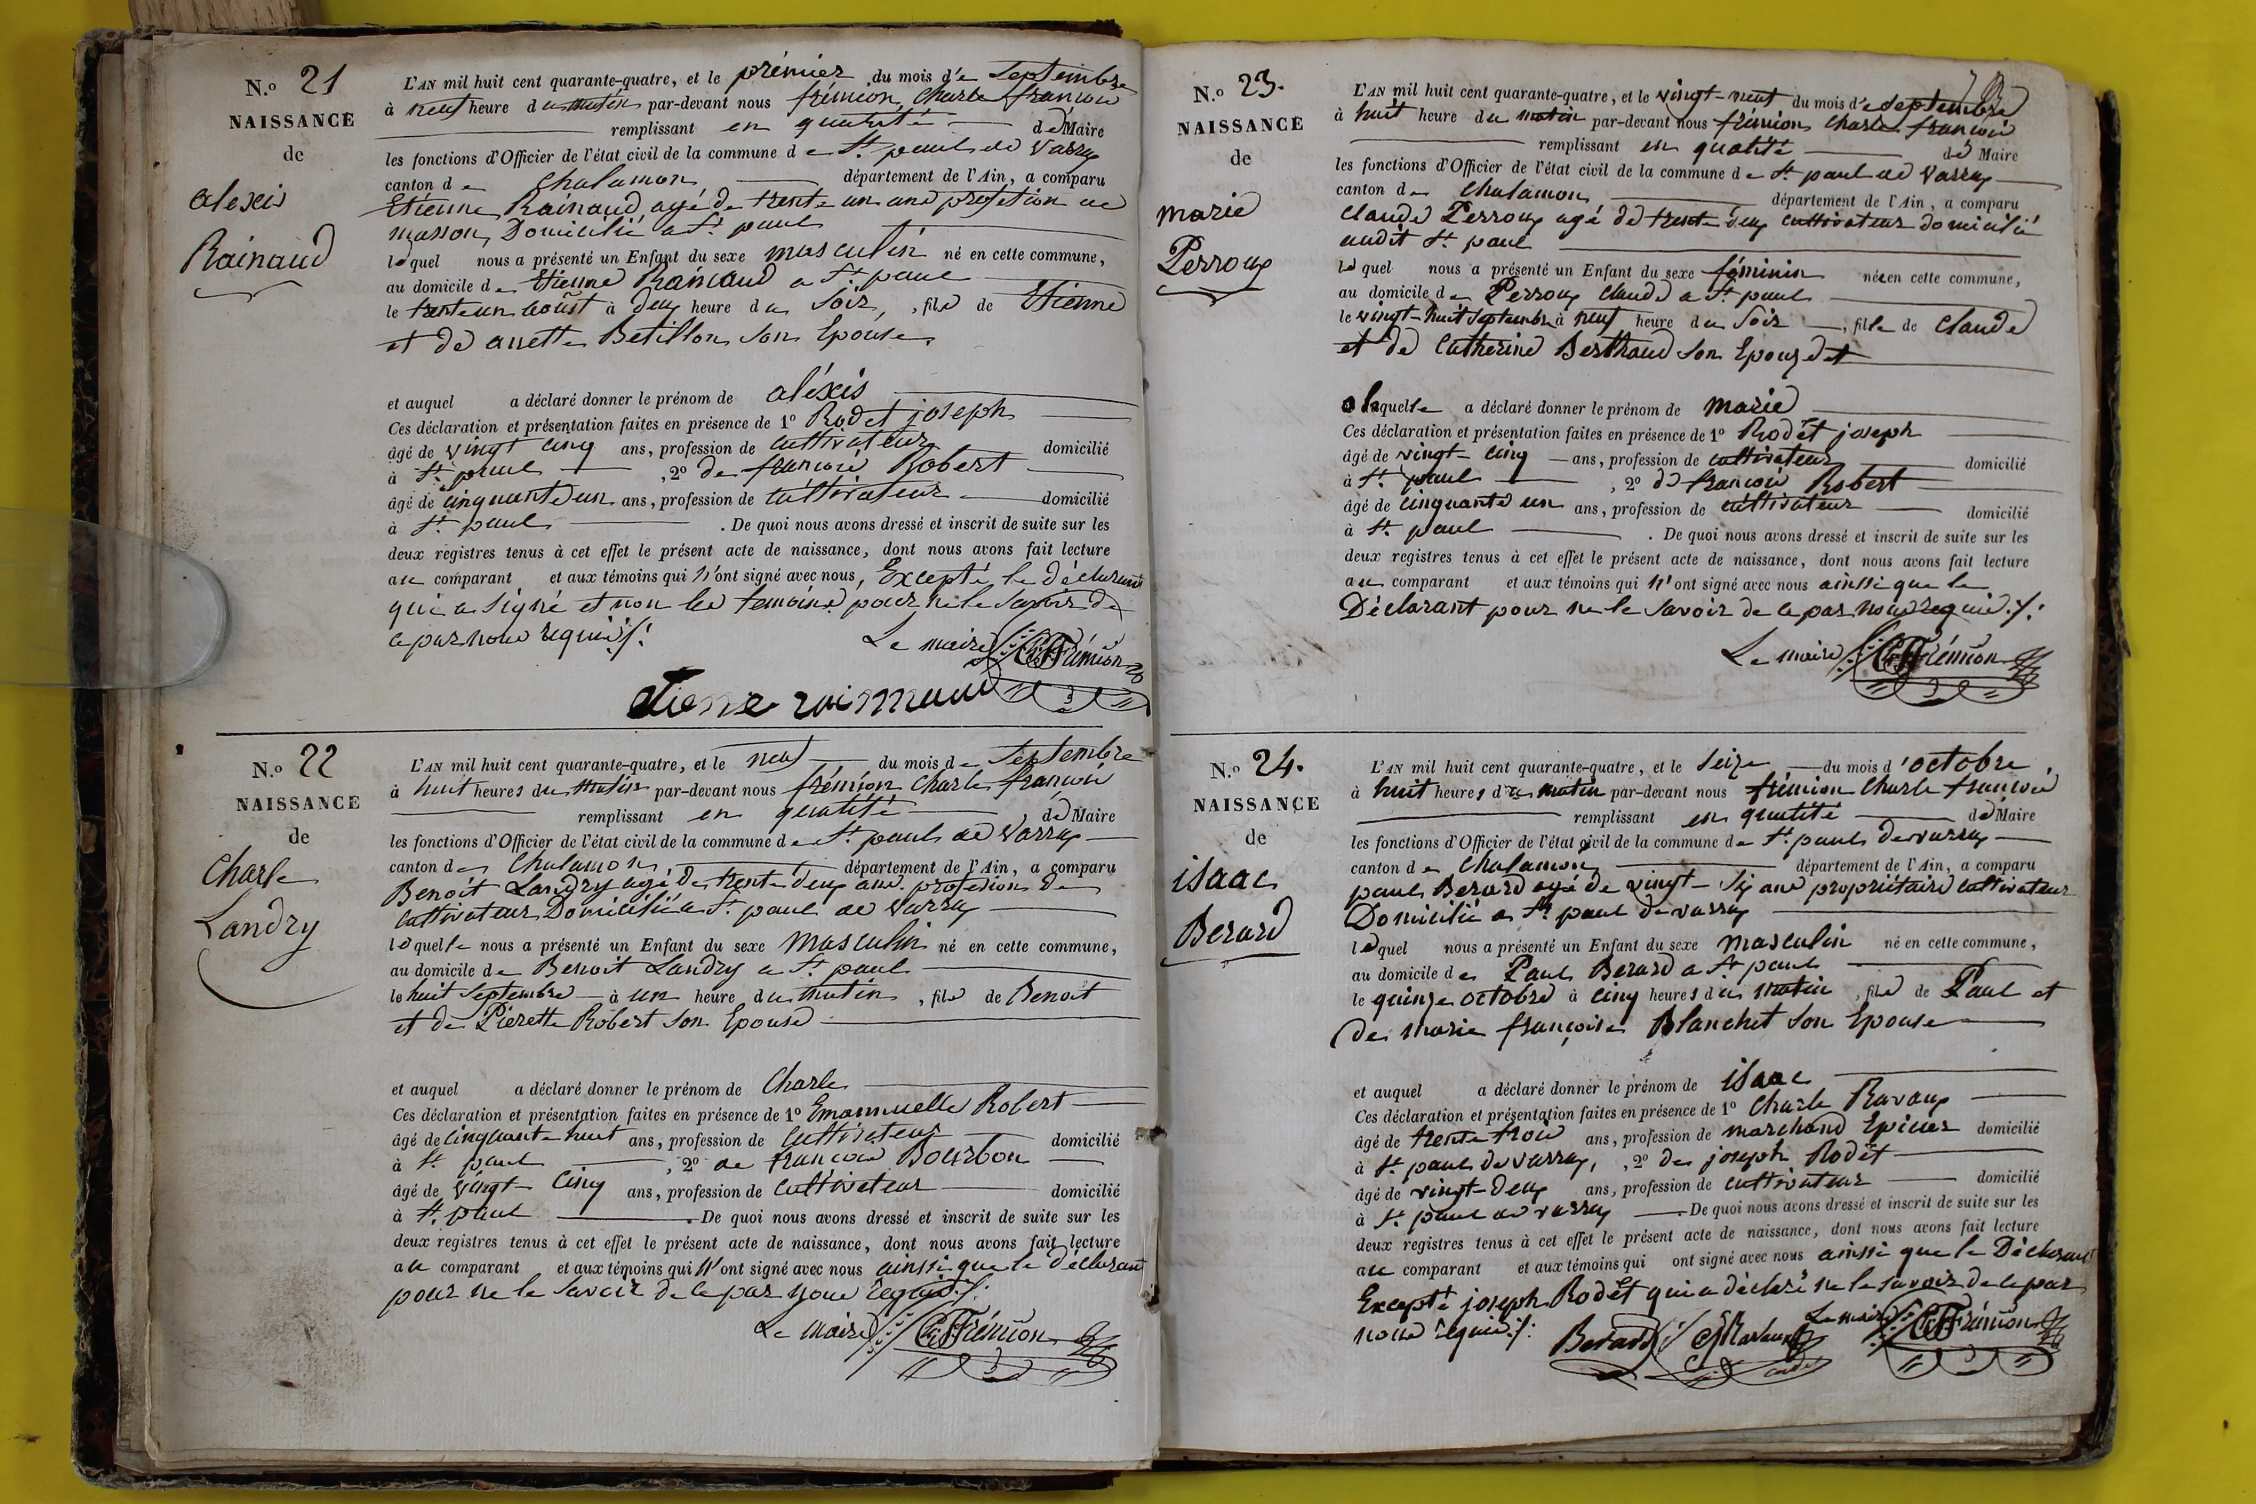 N.o 21
NAISSANCE
de
alexis
Rainaud
L'AN mil huit cent quarante-quatre, et le prémier du mois de Septembre
à neuf heure du matin par-devant nous frémion Charle francois
remplissant en qualité de Maire
les fonctions d'Officier de l'état civil de la commune de St. paul de Varax
canton de Chalamon département de l'Ain, a comparu
Etienne Rainaud agé de trente un ans profetion de
masson Domicilié a St. paul
lequel nous a présenté un Enfant du sexe masculin né en cette commune,
au domicile de Etienne Rainaud a St. paul
le trente un août à deux heure du Soir, fils de Etienne
et de anette Betillon son Epouse
et auquel a déclaré donner le prénom de aléxis
Ces déclaration et présentation faites en présence de 1o Rodet joseph
âgé de vingt cinq ans, profession de cultivateur domicilié
à St. paul, 2o de francois Robert
âgé de cinquante un ans, profession de cultivateur domicilié
à St. paul. De quoi nous avons dressé et inscrit de suite sur les
deux registres tenus à cet effet le présent acte de naissance, dont nous avons fait lecture
au comparant et aux témoins qui n'ont signé avec nous, Excepté le déclarant
qui a signé et non les temoins pour ne le savoir de
ce par nous requis./.
Le maire CFFrémion
Etiene raimaud
N.o 22
NAISSANCE
de
Charle
Landry
L'AN mil huit cent quarante-quatre, et le neuf du mois de Septembre
à huit heures du matin par-devant nous frémion Charle francois
remplissant en qualité de Maire
les fonctions d'Officier de l'état civil de la commune de St. paul de Varax
canton de Chalamon, département de l'Ain, a comparu
Benoit Landry agé de trente deux ans profesion de
cultivateur Domicilié a St. paul de Varax
lequelle nous a présenté un Enfant du sexe masculin né en cette commune,
au domicile de Benoit Landry a St. paul
le huit Septembre à un heure du matin, fils de Benoit
et de Pierette Robert son Epouse
et auquel a déclaré donner le prénom de Charle
Ces déclaration et présentation faites en présence de 1o Emannuelle Robert
âgé de cinquante huit ans, profession de cultivateur domicilié
à St. paul, 2o de francois Bourbon
âgé de vingt cinq ans, profession de cultivateur domicilié
à St. paul. De quoi nous avons dressé et inscrit de suite sur les
deux registres tenus à cet effet le présent acte de naissance, dont nous avons fait lecture
au comparant et aux témoins qui n'ont signé avec nous ainsi que le déclarant
pour ne le savoir de ce par nous requis./.
Le maire CFFrémion
N.o 23.
NAISSANCE
de
marie
Perroux
L'AN mil huit cent quarante-quatre, et le vingt-neuf du mois de septembre
à huit heure du matin par-devant nous frémion Charle francois
remplissant en qualité de Maire
les fonctions d'Officier de l'état civil de la commune de St. paul de Varax
canton de Chalamon département de l'Ain, a comparu
Claude Perroux agé de trente deux cultivateur domicilié
audit St. paul
lequel nous a présenté un Enfant du sexe féminin née en cette commune,
au domicile de Perroux Claude a St. paul
le vingt-huit septembre à neuf heure du Soir, fille de Claude
et de Catherine Berthaud son Epouze et
a laquelle a déclaré donner le prénom de marie
Ces déclaration et présentation faites en présence de 1o Rodét joseph
âgé de vingt-cinq ans, profession de cultivateur domicilié
à St. paul, 2o de francois Robert
âgé de cinquante un ans, profession de cultivateur domicilié
à St. paul. De quoi nous avons dressé et inscrit de suite sur les
deux registres tenus à cet effet le présent acte de naissance, dont nous avons fait lecture
au comparant et aux témoins qui n'ont signé avec nous ainssi que le
Déclarant pour ne le savoir de ce par nous requis./.
Le maire CFFrémion
N.o 24.
NAISSANCE
de
isaac
Berard
L'AN mil huit cent quarante-quatre, et le seize du mois d'octobre
à huit heures du matin par-devant nous frémion Charle francois
remplissant en qualité de Maire
les fonctions d'Officier de l'état civil de la commune de St. paul de varax
canton de Chalamon département de l'Ain, a comparu
paul Berard agé de vingt-six ans propriétaire cultivateur
Domicilié a St paul de varax
lequel nous a présenté un Enfant du sexe masculin né en cette commune,
au domicile de Paul Berard a St paul
le quinze octobre à cinq heures du matin, fils de Paul et
de marie françoise Blanchet son Epouse
et auquel a déclaré donner le prénom de isaac
Ces déclaration et présentation faites en présence de 1o Charle Ravaux
âgé de trente trois ans, profession de marchand Epicier domicilié
à St. paul de varax, 2o de joseph Rodêt
âgé de vingt-deux ans, profession de cultivateur domicilié
à St. paul de varax. De quoi nous avons dressé et inscrit de suite sur les
deux registres tenus à cet effet le présent acte de naissance, dont nous avons fait lecture
au comparant et aux témoins qui ont signé avec nous ainssi que le Déclarant
Excepté joseph Rodêt qui a déclaré ne le savoir de ce par
nous requis./.
Le maire CFFrémion
Berard